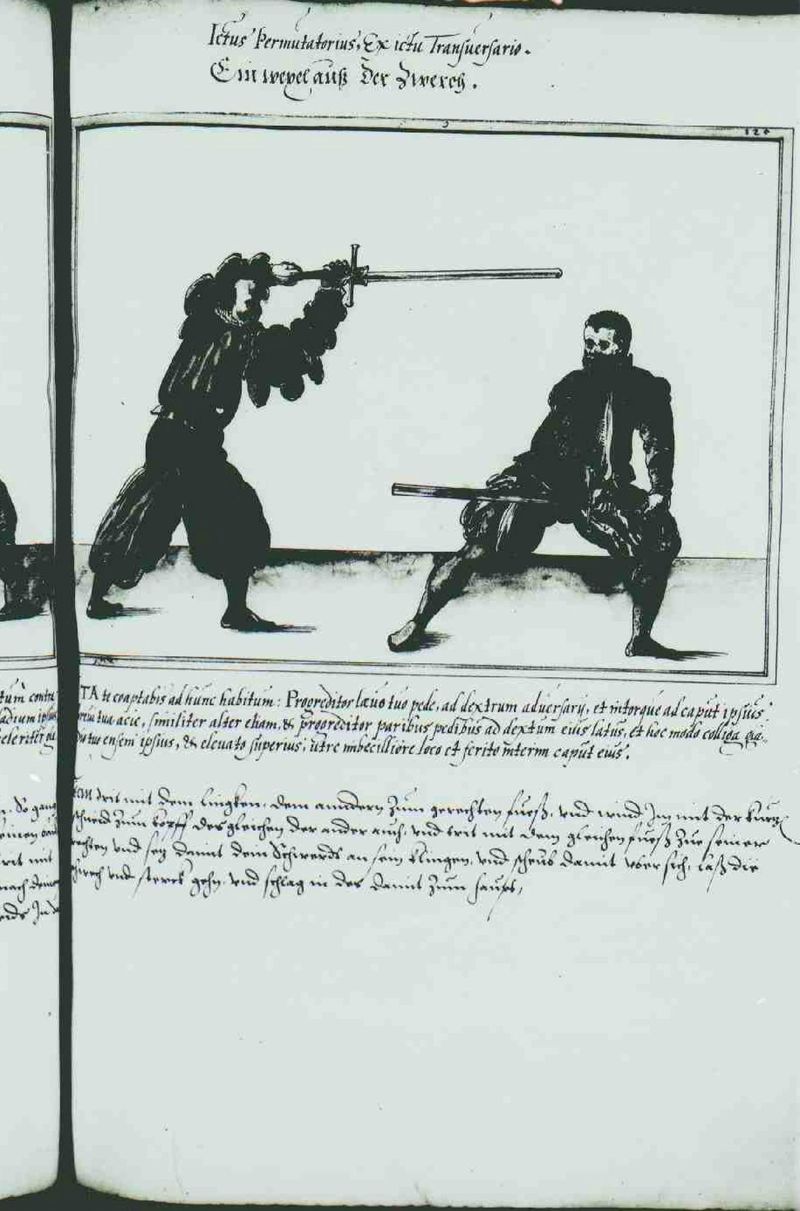 Ictus Permutatorius, Ex ictu Transuersario.
Ein wexel auß der Zwerch.
120
ITA te coaptabis ad hunc habitum: Progreditor laeuo tuo pede, ad dextrum aduersarij, et intorque ad caput ipsius
tua acie, similiter alter etiam, & progreditor paribus pedibus ad dextum eius latus, et hoc modo colliga gla-
dio tuo ensem ipsius, & eleuato superius, utre imbecilliore loco et ferito interim caput eius.
Item trit mit dem lingken, dem anndern zum gerechten fueß, vnd wind Im mit der kurtz
schneid zum kopff des gleichen der ander auch, vnd trit mit dem gleichen fueß zue seiner
rechten vnd setz damit dem Schwerdt an sein klingen, vnd scheub damit vber sich, laß die
Zwerch vnd sterck gehn, vnd schlag in des damit zum haupt,
tum contu
adium ipsius
celeriter
So gang
trit mit
nach dem